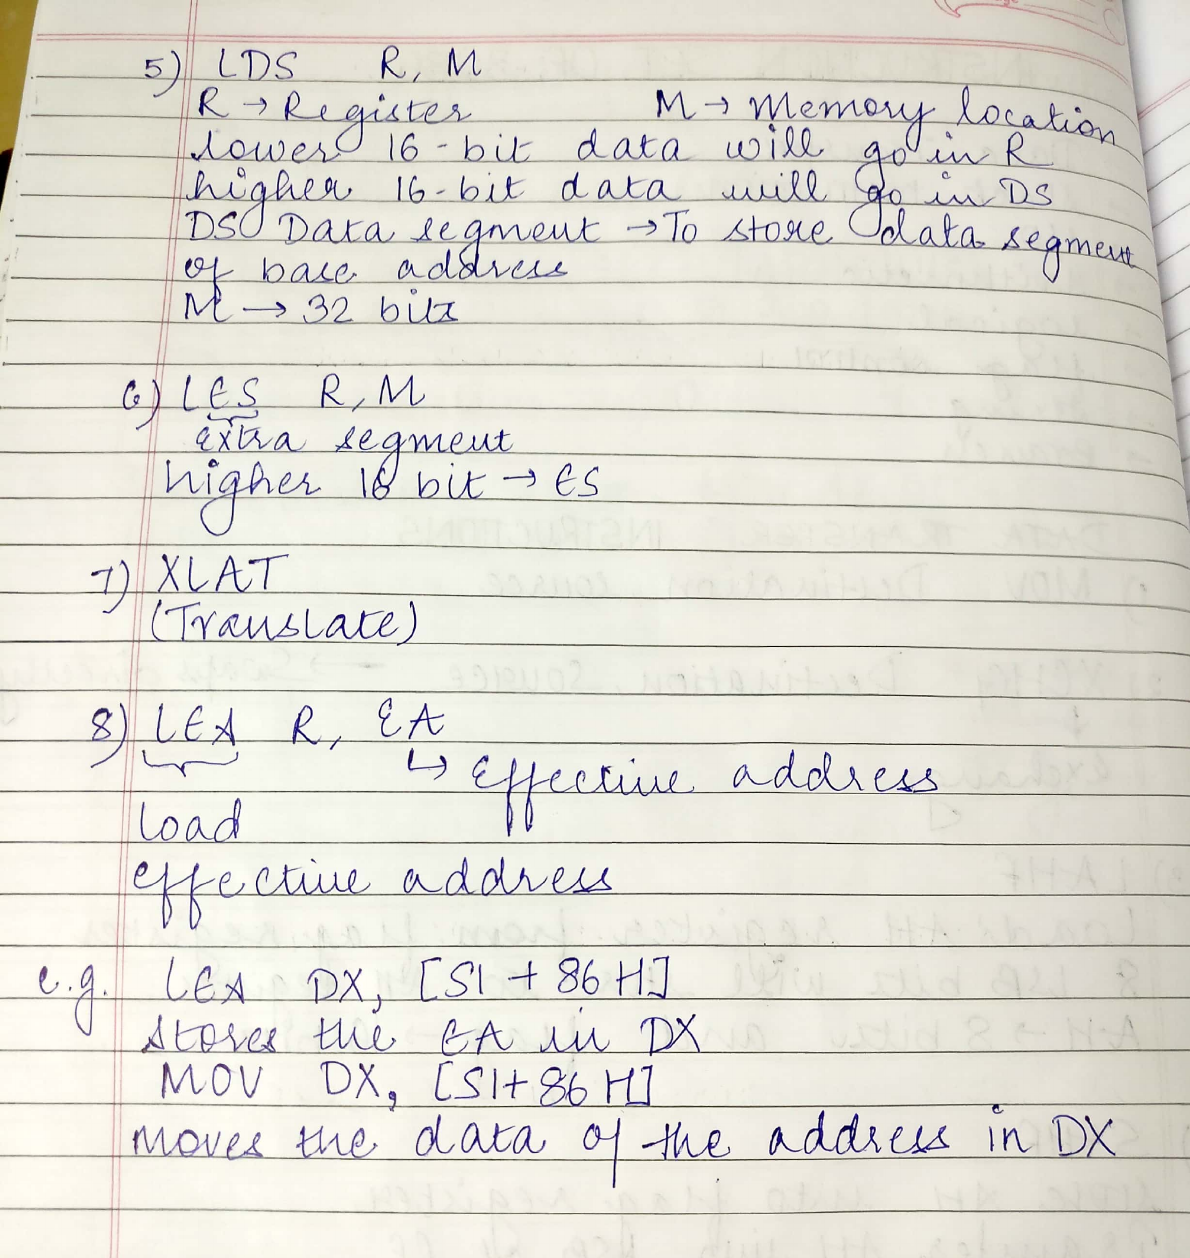 5) LDS R, M
R → Register M → Memory location
lower 16-bit data will go in R
higher 16-bit data will go in DS
DS Data segment → To store data segment
of base address
M → 32 bits
6) LES R, M
extra segment
higher 16 bit → ES
7) XLAT
(Translate)
8) LEA R, EA
↳ Effective address
load
effective address
e.g. LEA DX, [SI + 86 H]
stores the EA in DX
MOV DX, [SI + 86 H]
moves the data of the address in DX